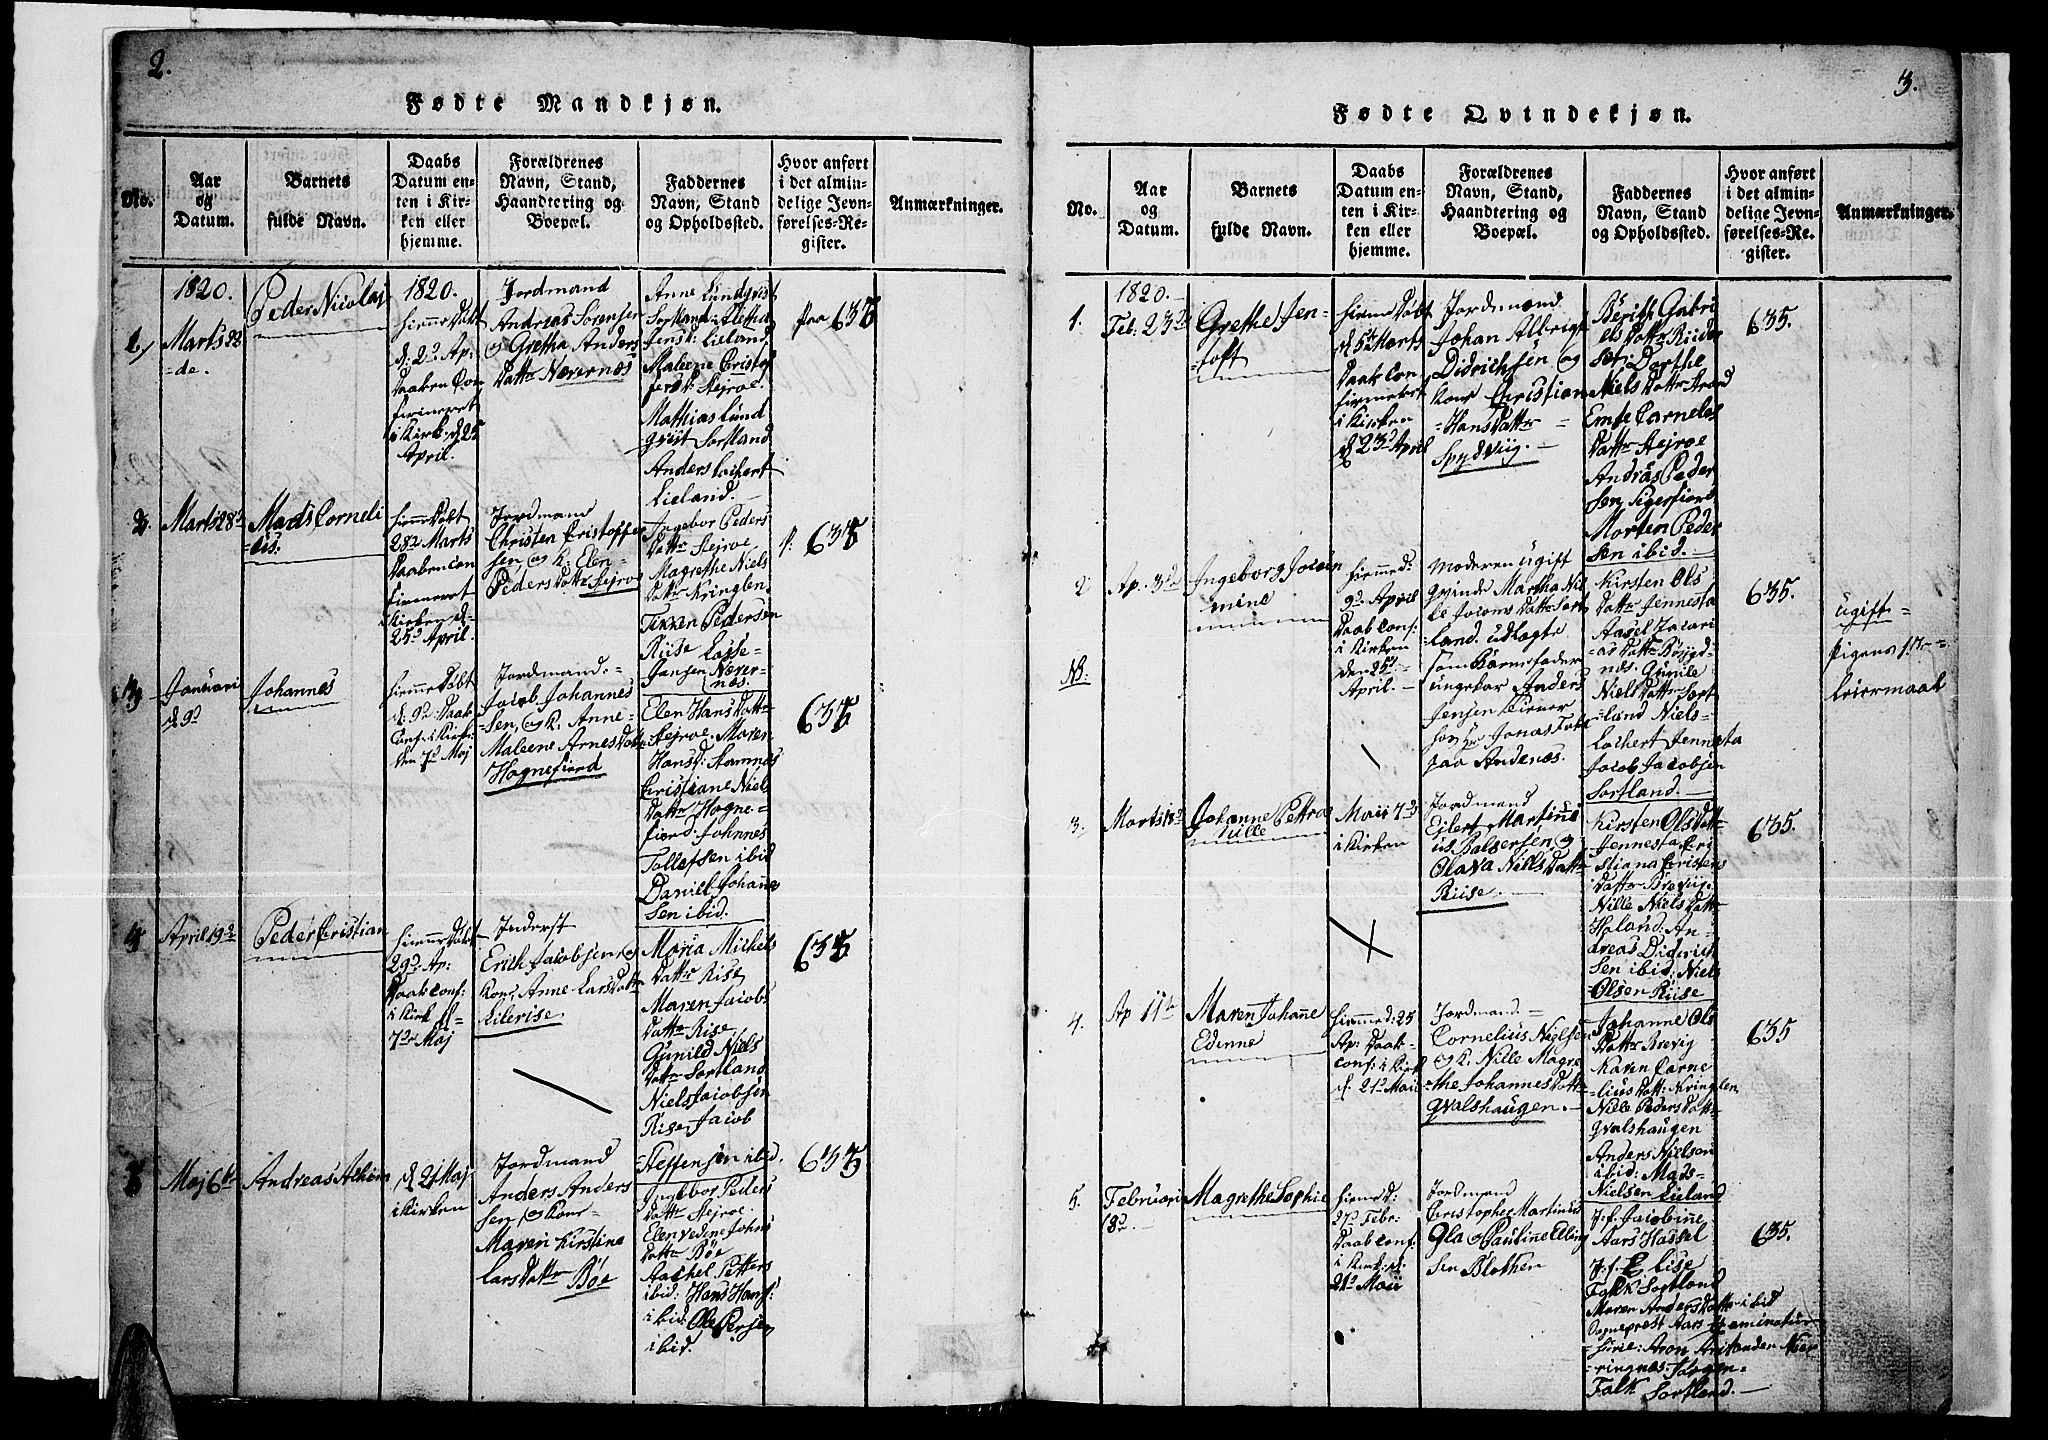 2.
Fødte Mandkjøn.
No.
Aar
og
Datum.
Barnets
fulde Navn.
Daabs
Datum en-
ten i Kir-
ken eller
hjemme.
Forældrenes
Navn, Stand,
Haandtering og
Boepæl.
Faddernes
Navn, Stand
og Opholdssted.
Hvor anført
i det almin-
delige Jevn-
førelses-Re-
gister.
Anmærkninger.
1820.
Marts 22
=de.
Peder Nicolai
1820.
hiemme Døbt
d: 2d Ap:
Daaben Con
firmeret
i Kirk: d 25
April.
Jordmand
Andreas Sörensen
og Gretha Anders
Dattr Nævernæs
Anne Lundqvist
Sortland:
Lieland
Maleene Cristof
fersd: Stejroe.
Mathias Lund
qvist Sortland
Anders Lockert
Lieland.
paa 635
2.
Marts 28d
Mads Corneli
us.
hiemme Døbt
28d Marts
Daaben Con
firmeret
Kirken d:
25d April.
Jordmand
Christen Cristoffer
sen, og K: Elen
Peders Dattr Stejroe
Ingebor Peders
Dattr Stejroe
Magrethe Niels
Dattr Kringlen,
Peder sen
Riise Lasse
Jansen Næver-
næs.
p: 635
3
Januari
d 9d
Johannes
hiemme Døbt
d: 9d Daab
Conf: i Kirk:
den 7d Maj
Jordmand
Jacob Johannes
sen, og K. Anne
Maleene Arnes Dattr
Hognefiord
Elen Hans Dattr
Stejroe. Maren
Hansd: Hamnæs
Cristiane Niels
Dattr Hogne=
fiord: Johnnes
Tollefsen ibid
Daniel Johanne
sen ibid.
635
4
April 19d
Peder Cristian
hiemme Døbt
29d Ap:
Daab Conf:
i Kirk d=
7d Maj
Inderst
Erich Jacobsen og
Kone Anne Lars Dattr
Lilerise
Maria Michels
Dattr Rise
Maren Jacobs
Dattr Rise
Gunild Niels
Dattr Sortland
Niels Jacobsen
Rise, Jacob
Steffensen ibid.
635
5
Maj 6te
Andreas
d 21 Maj
i Kirken
Jordmand
Anders Anders
sen, og Kone
Maren Kirstine
Lars Dattr Böe
Ingebor Peders
Dattr Stejroe
Elen vedine Johns
Dattr Böe
Rachel Petters
ibid: Hans Hans:
ibid. Ole Persen
ibid.
635
3.
Fødte Qvindekjøn.
No.
Aar
og
Datum.
Barnets
fulde Navn.
Daabs
Datum en-
ten i Kir-
ken eller
hjemme.
Forældrenes
Navn, Stand,
Haandtering og
Boepæl.
Faddernes
Navn, Stand
og Opholdssted.
Hvor anført
i det almin-
delige Jevn-
førelses-Re-
gister.
Anmærkninger.
1.
1820.
Feb: 23d
Grethe Jen=
=toft
hiemme Døbt
d 5te Marts
Daab Con
firmeret
i Kirken
d 23d April
Jordmand
Johan Albrigt
Didrichsen og
Kone Christian
=Hans Dattr
Spydviig.
Berith Gabri
els Dattr
Dorthe
Niels Dattr
Cornelis
Dattr Stejroe
Andräs Peder
sen Sigerfiord
Morten Peder
sen ibid.
635.
2
Ap. 3d
Ingeborg Jocom
mine
hiemmed:
9d April
Daab Conf:
i Kirken
den 25d
April.
Moderen ugift
qvinde Martha Nil
le Jocoms Dattr Sort
land. udlagte
som Barnefader
ungekar Anders
Jensen
Jonas
paa Andenæs.
Kirsten Ols
Dattr Jennesta
Aasel Zacari
as Dattr Böÿgd
næs. Gunile
Niels Dattr Sort
land Niels
Lochert Jennesta
Jacob Jacobsen
Sortland.
635.
NB:
ugift=
Pigens 1ste
Leiermaal
3.
Marts 18d
Johanne Pettra
Nille
Maii 7d
i Kirken
Jordmand
Ejlert Martini
us Balsersen og
Olava Niels Dattr
Riise.
Kirsten Ols Datt
Jennesta, Cri
stiana Cristens
Dattr Breviig.
Nille Niels Dattr
Holand: An
dreas Diderich
sen ibid: Niels
Olsen Riise
635.
4.
Ap 11te
Maren Johanne
Edinne
hiemmed: 25
Ap: Daab
Conf: i Kirk
d. 21d Maii
Jordmand.
Cornelius Nielsen
og K: Nille Magre
the Johannes Dattr
Qvalshaugen.
Johanne Ols
Dattr Brevig
Karen Corne
lius Datt: Kringlen
Nille Peders Dattr
Qvalshaugen
Anders Nielsen
ibid: Mats
Nielsen Lieland
635
5.
Februari
18d
Magrethe Sophie
hiemd:
27d Febr:
Daab Conf:
i Kirk: d.
21d Maii
Jordmand
Cristopher Martinus
Gla og Pauline Elling
sen Blokken
J:f: Jacobine
Aars Hassel
J:f: Elise
Falk Sortland
Maren Anders Dattr ibid
Sogneprest Aars
Falk Sortland.
635.